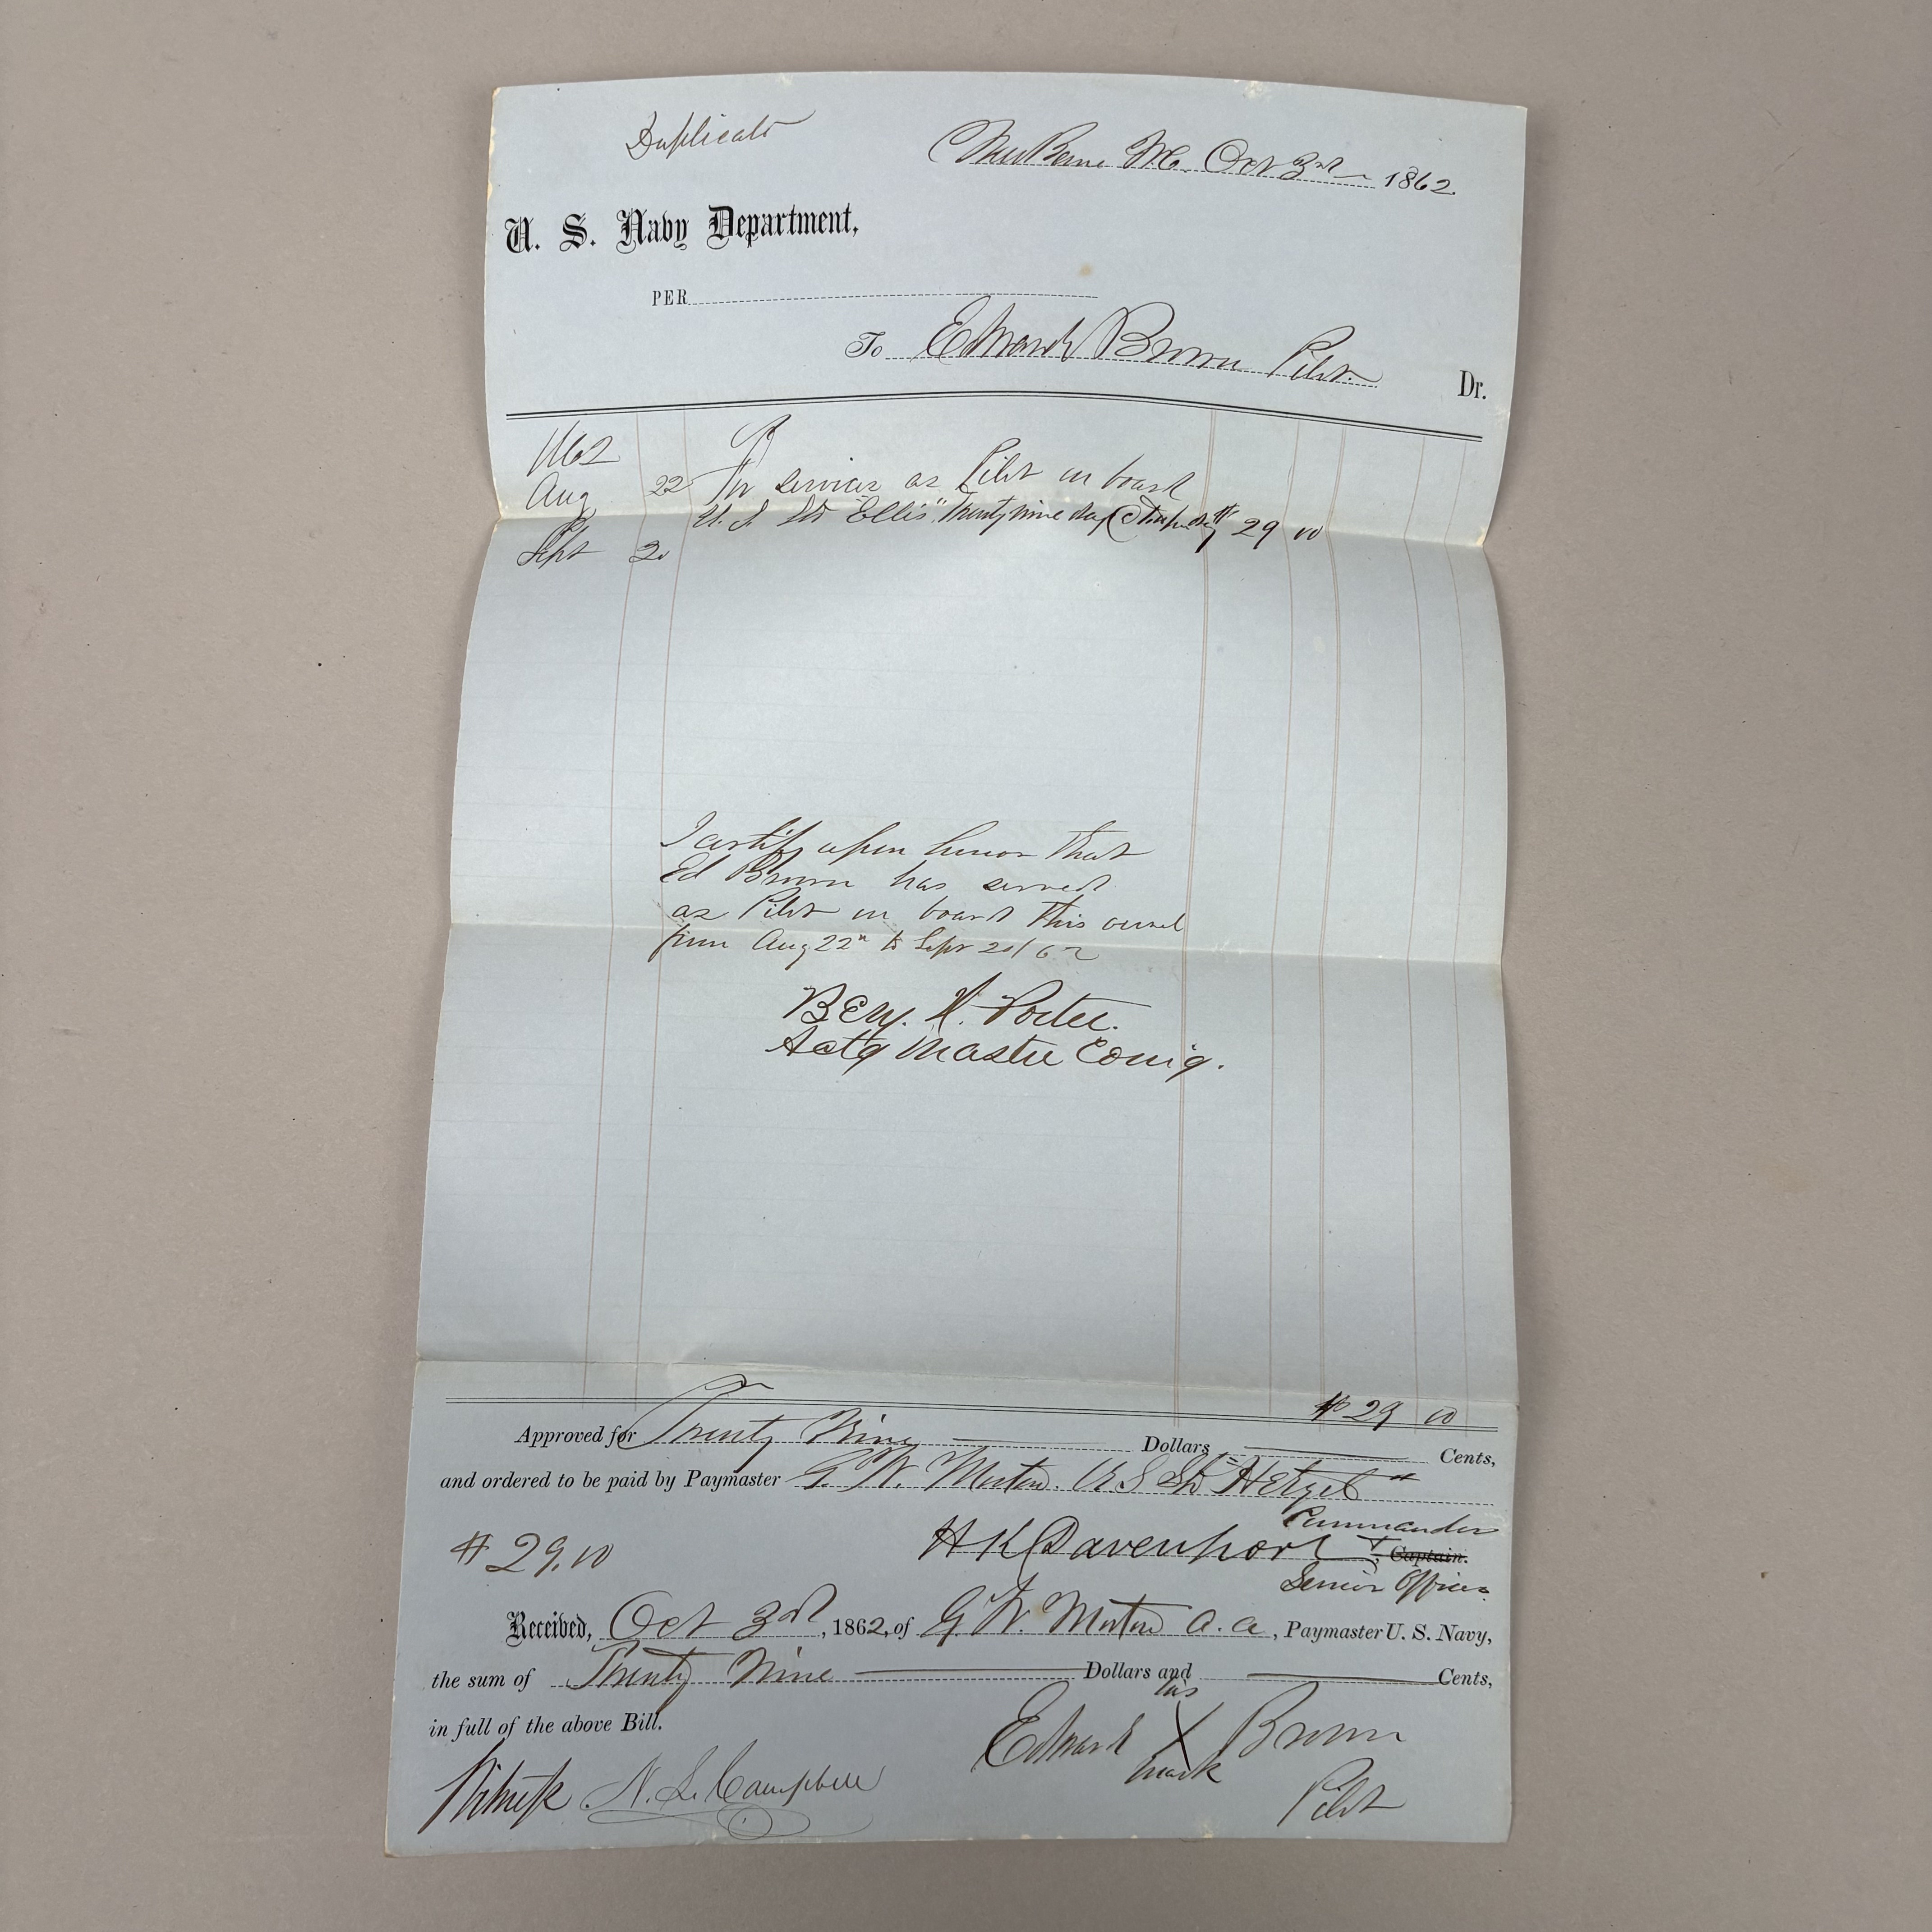 Duplicate
NewBerne N.C. Oct 3rd 1862
U. S. Navy Department,
PER
To Edward Brown Pilot Dr.
1862
Aug 22 For services as Pilot on board
U. S. Str "Ellis" Twenty nine days @ $ 29 00
Sept 20
I certify upon honor that
Ed Brown has served
as Pilot on board this vessel
from Aug 22" to Sept 20/62
Benj. H. Porter.
Actg Master Comg.
$ 29 00
Approved for Twenty Nine Dollars Cents,
and ordered to be paid by Paymaster G. W. Morton. U S Str "Hetzel"
Commander
$29.00 H K Davenport, Captain.
& Senior Officer.
Received, Oct 3rd, 1862, of G. W. Morton a. a., Paymaster U. S. Navy,
the sum of Twenty Nine Dollars and Cents,
in full of the above Bill.
his
Edward X Brown
mark
Witness N. S. Campbell Pilot